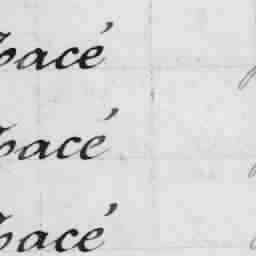 Pacé
Pacé
Pacé